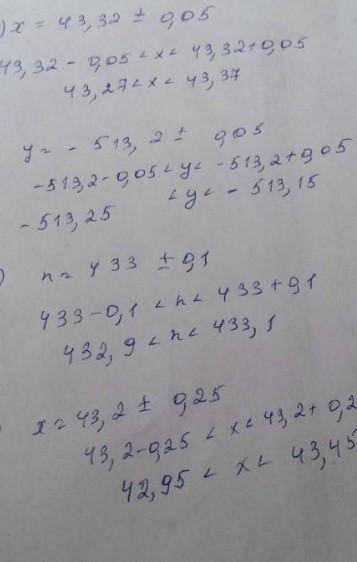 ) x = 43,32 ± 0,05
43,32 - 0,05 < x < 43,32 + 0,05
43,27 < x < 43,37
y = - 513,2 ± 0,05
-513,2 - 0,05 < y < -513,2 + 0,05
-513,25 < y < - 513,15
) n = 433 ± 0,1
433 - 0,1 < n < 433 + 0,1
432,9 < n < 433,1
x = 43,2 ± 0,25
43,2 - 0,25 < x < 43,2 + 0,2
42,95 < x < 43,45